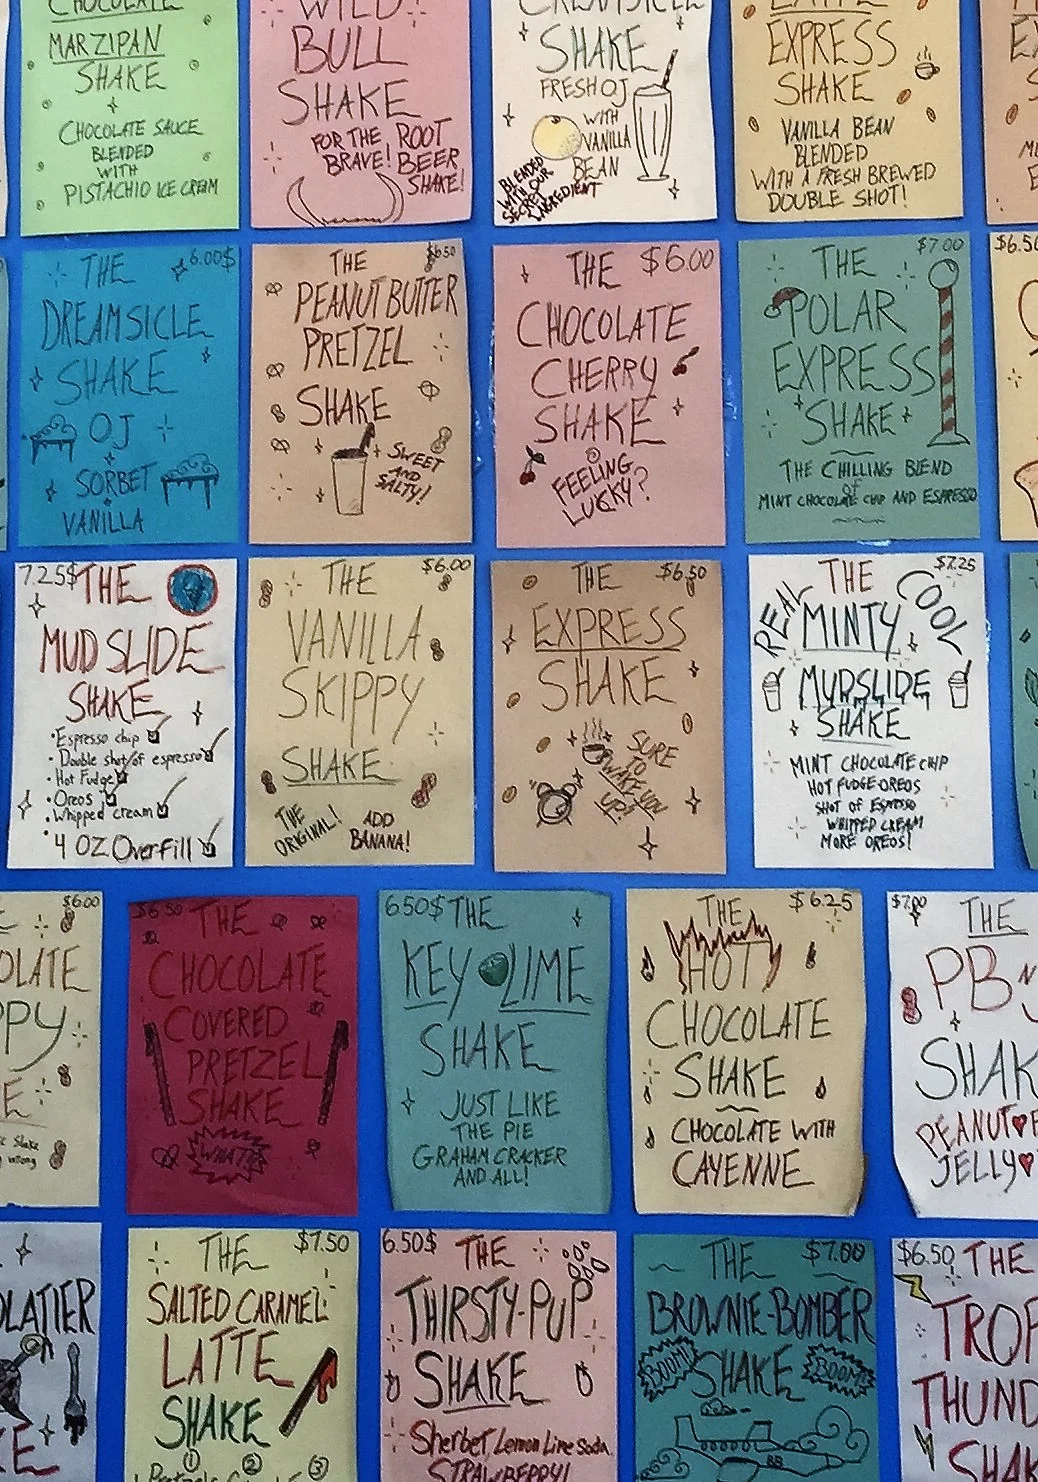 CHOCOLATE
MARZIPAN
SHAKE
CHOCOLATE SAUCE
BLENDED
WITH
PISTACHIO ICE CREAM
WILD
BULL
SHAKE
FOR THE
BRAVE!
ROOT
BEER
SHAKE!
CREAMSICLE
SHAKE
FRESH OJ
WITH
VANILLA
BEAN
BLENDED
WITH OUR
SECRET
INGREDIENT
LATTE
EXPRESS
SHAKE
VANILLA BEAN
BLENDED
WITH A FRESH BREWED
DOUBLE SHOT!
THE 6.00$
DREAMSICLE
SHAKE
OJ
SORBET
VANILLA
THE $6.50
PEANUT BUTTER
PRETZEL
SHAKE
SWEET
AND
SALTY!
THE $6.00
CHOCOLATE
CHERRY
SHAKE
FEELING
LUCKY?
THE $7.00
POLAR
EXPRESS
SHAKE
THE CHILLING BLEND
OF
MINT CHOCOLATE CHIP AND ESPRESSO
$6.50
7.25$ THE
MUDSLIDE
SHAKE
• Espresso chip
• Double shot of espresso
• Hot Fudge
• Oreos
• Whipped cream
• 4 OZ Overfill
THE $6.00
VANILLA
SKIPPY
SHAKE
THE
ORIGINAL!
ADD
BANANA!
THE $6.50
EXPRESS
SHAKE
SURE
TO
WAKE YOU
UP!
THE $7.25
REAL
COOL
MINTY
MUDSLIDE
SHAKE
MINT CHOCOLATE CHIP
HOT FUDGE·OREOS
SHOT OF ESPRESSO
WHIPPED CREAM
MORE OREOS!
$6.00
OLATE
PPY
E
$6.50 THE
CHOCOLATE
COVERED
PRETZEL
SHAKE
WHAT?
6.50$ THE
KEY LIME
SHAKE
JUST LIKE
THE PIE
GRAHAM CRACKER
AND ALL!
THE $6.25
HOT
CHOCOLATE
SHAKE
CHOCOLATE WITH
CAYENNE
$7.00 THE
PB
SHAK
PEANUT
JELLY
OLATIER
KE
THE $7.50
SALTED CARAMEL
LATTE
SHAKE
① ② ③
6.50$ THE
THIRSTY-PUP
SHAKE
Sherbet Lemon Lime Soda
STRAWBERRY!
THE $7.00
BROWNIE-BOMBER
BOOM!
SHAKE
BOOM!
$6.50 THE
TROP
THUND
SHAK